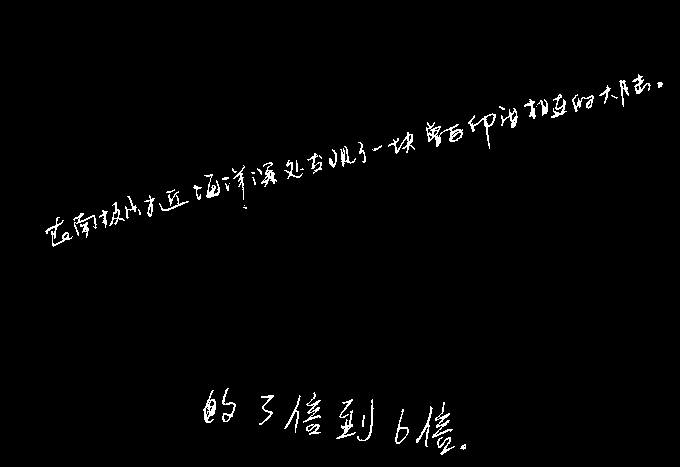 在南极附近海洋深处发现了一块曾与印相连的大陆。
的3倍到6倍。